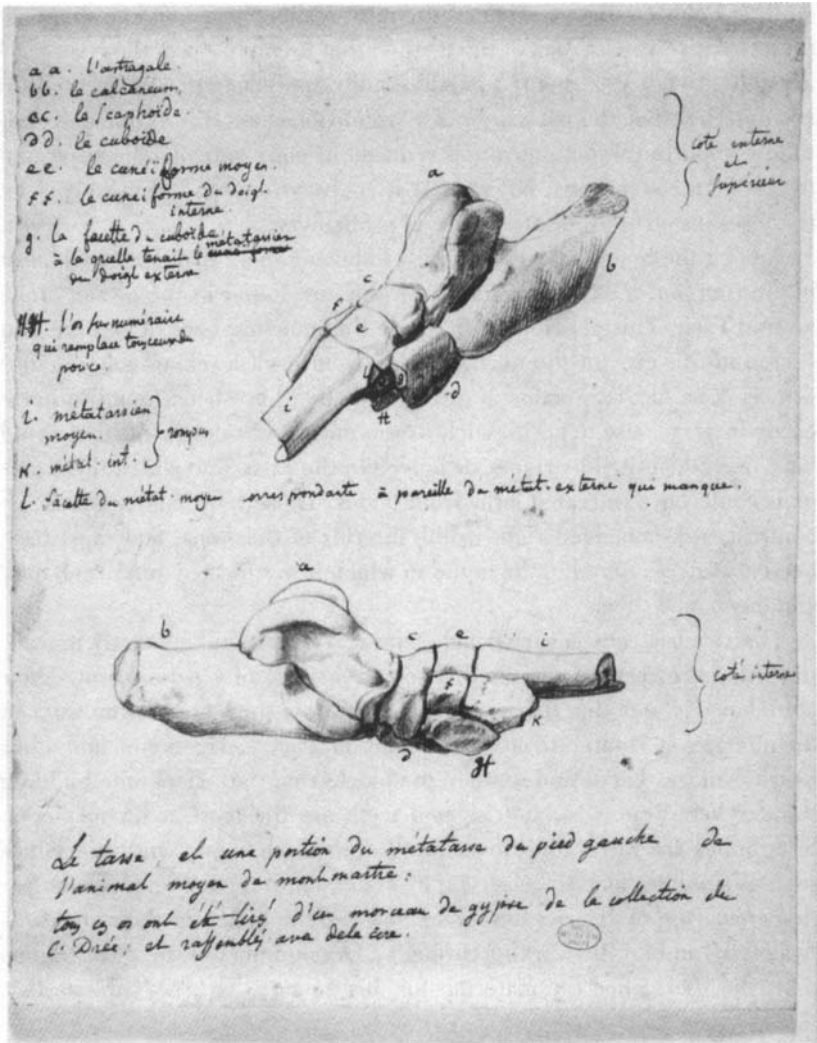 a a. l'astragale.
bb. le calcaneum.
cc. le scaphoïde.
dd. le cuboïde
ee. le cunéiforme moyen.
ff. le cuneiforme du doigt
interne.
g. la facette du cuboïde
à la quelle tenait le cuneiforme métatarsien
du doigt externe
HH. l'os surnuméraire
qui remplace tous ceux du
pouce
i. métatarsien
moyen.
rompus
K. métat. int.
L. facette du métat. moyen correspondante à pareille du métat. externe qui manque.
coté interne
et
supérieur
a
b
c
f
e
L
g
i
H
d
a
b
c
e
i
f
K
d
H
coté interne
Le tarse et une portion du métatarse du pied gauche de
l'animal moyen de montmartre:
tous ces os ont été tiré d'un morceau de gypse de la collection de
C. Drée; et rassemblés avec de la cire.